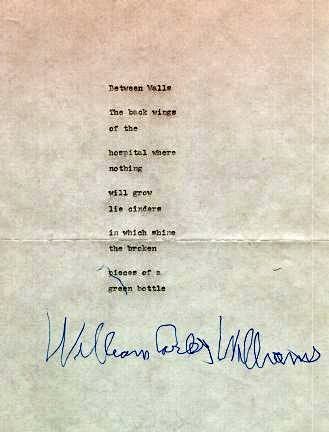 Between Walls
The back wings
of the
hospital where
nothing
will grow
lie cinders
in which shine
the broken
pieces of a
green bottle
William Carlos Williams